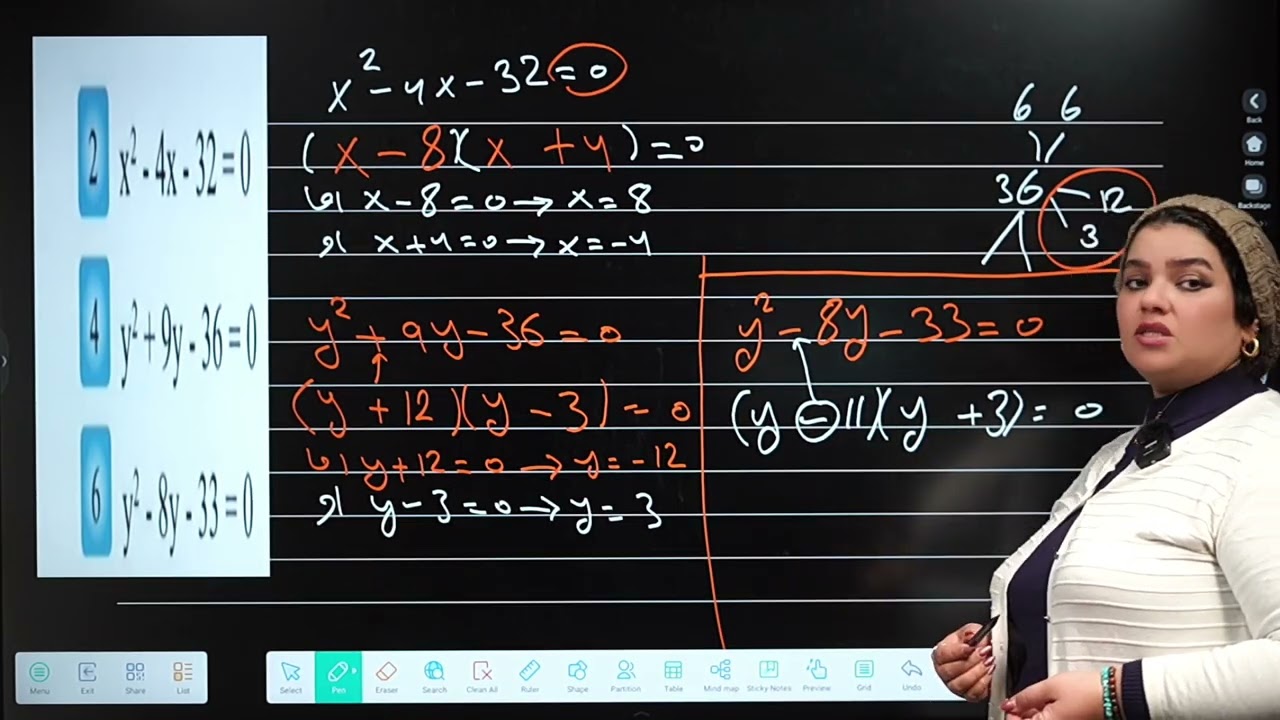 2 x² - 4x - 32 = 0
4 y² + 9y - 36 = 0
6 y² - 8y - 33 = 0
x² - 4x - 32 = 0
(x - 8)(x + 4) = 0
اما x - 8 = 0 → x = 8
او x + 4 = 0 → x = -4
y² + 9y - 36 = 0
(y + 12)(y - 3) = 0
اما y + 12 = 0 → y = -12
او y - 3 = 0 → y = 3
6 6
36 12
3
y² - 8y - 33 = 0
(y - 11)(y + 3) = 0
Back
Home
Backstage
Menu Exit Share List
Select Pen Eraser Search Clean All Ruler Shape Partition Table Mind map Sticky Notes Preview Grid Undo